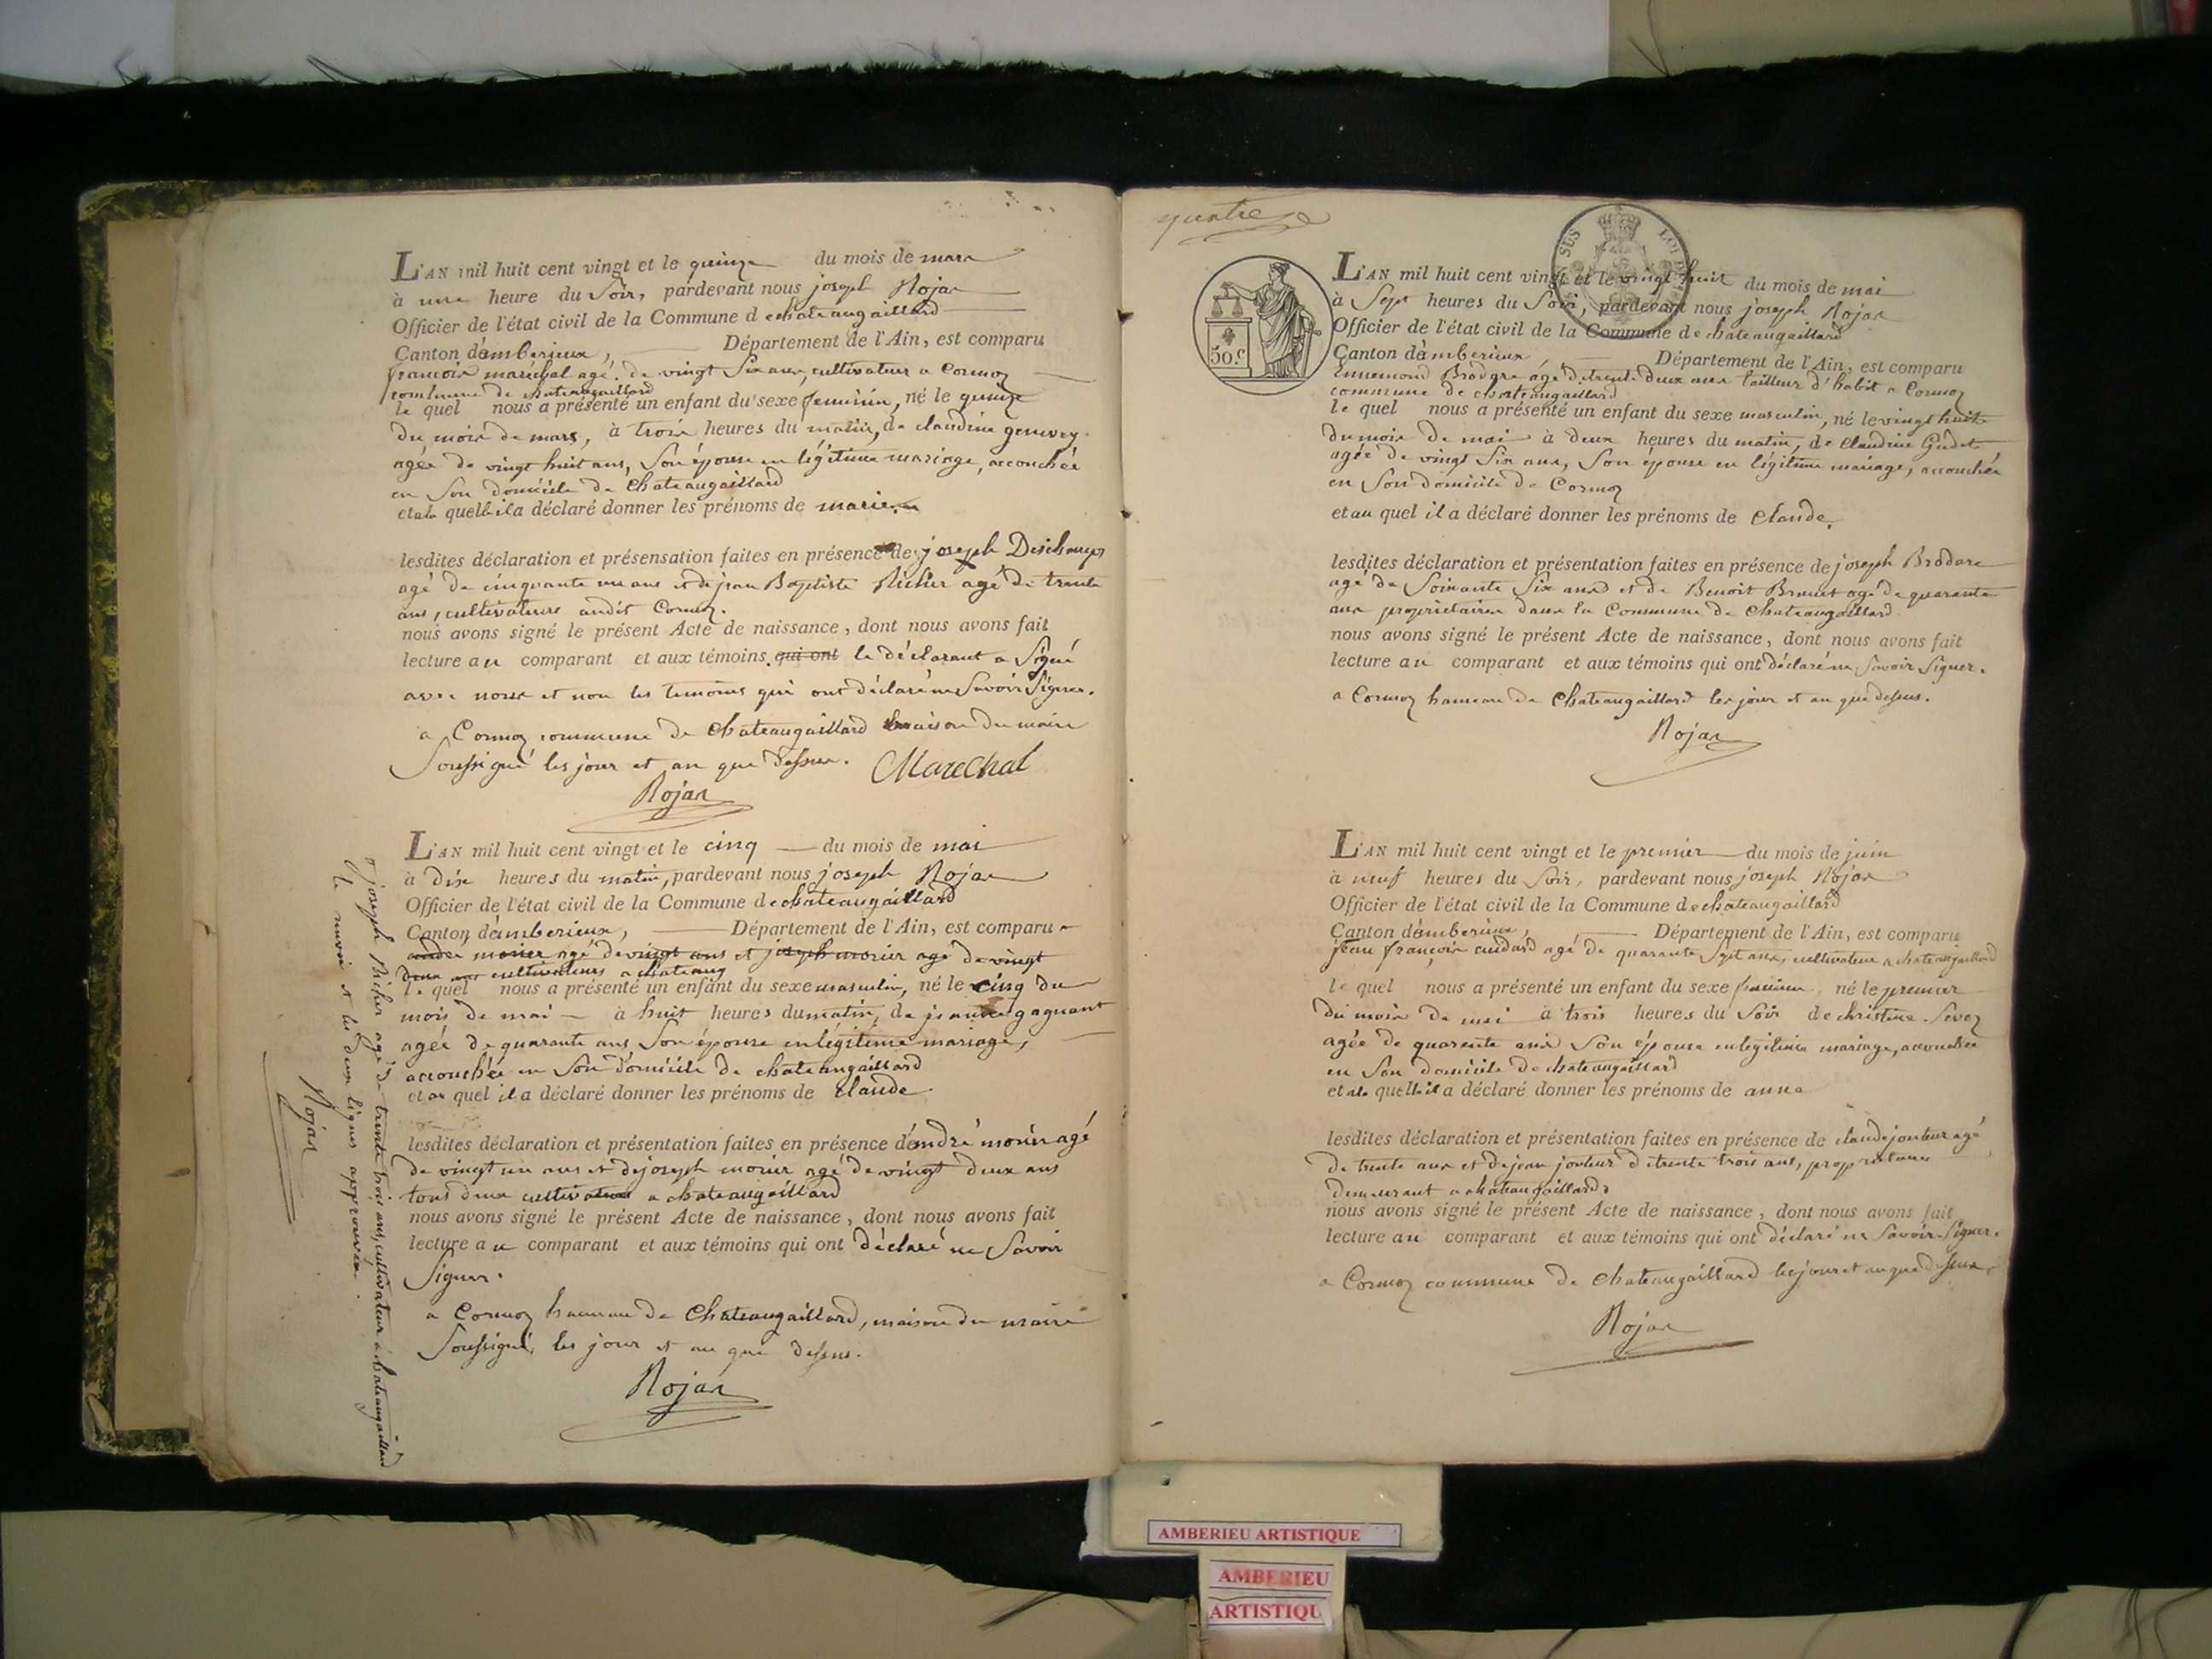 L'AN mil huit cent vingt et le quinze du mois de mars
à une heure du soir, pardevant nous joseph Rojan
Officier de l'état civil de la Commune de chateaugaillard
Canton d'amberieux, Département de l'Ain, est comparu
francois maréchal agé de vingt six ans, cultivateur a Cormoz
commune de chateaugaillard
le quel nous a présenté un enfant du sexe feminin, né le quinze
du mois de mars, à trois heures du matin, de claudine
agée de vingt huit ans, Son épouse en légitime mariage, accouchée
en Son domicile de Chateaugaillard
et a la quelle il a déclaré donner les prénoms de marie
lesdites déclaration et présensation faites en présence de joseph Deschamps
agé de cinquante un ans et de jean Baptiste Richer agé de trente
ans, cultivateurs audit Cormoz.
nous avons signé le présent Acte de naissance, dont nous avons fait
lecture au comparant et aux témoins qui ont le déclarant a Signé
avec nous et non les temoins qui ont déclaré ne Savoir Signer.
a Cormoz commune de Chateaugaillard maison du maire
Soussigné les jour et an que dessus. Marechal
Rojan
L'AN mil huit cent vingt et le cinq du mois de mai
à dix heures du matin, pardevant nous joseph Rojan
Officier de l'état civil de la Commune de chateaugaillard
Canton d'amberieux, Département de l'Ain, est comparu
andré morier agé de vingt ans et joseph morier agé de vingt
deux ans cultivateurs a chateaug
le quel nous a présenté un enfant du sexe masculin, né le cinq du
mois de mai à huit heures du matin, de jeanne gagnant
agée de quarante ans Son épouse en légitime mariage,
accouchée en Son domicile de chateaugaillard
et au quel il a déclaré donner les prénoms de Claude
lesdites déclaration et présentation faites en présence d'andré morier agé
de vingt un ans et de joseph morier agé de vingt deux ans
tous deux cultivateurs a chateaugaillard
nous avons signé le présent Acte de naissance, dont nous avons fait
lecture au comparant et aux témoins qui ont déclaré ne Savoir
Signer.
a Cormoz hameau de Chateaugaillard, maison du maire
Soussigné, les jour et an que dessus.
Rojan
joseph Richer agé de trente trois ans, cultivateur a chateaugaillard
le renvoi et les deux lignes approuvées.
Rojan
quatre
50.c
L'AN mil huit cent vingt et le vingt huit du mois de mai
à Sept heures du Soir, pardevant nous joseph Rojan
Officier de l'état civil de la Commune de chateaugaillard
Canton d'amberieux, Département de l'Ain, est comparu
Ennemond agé de trente deux ans tailleur d'habit a Cormoz
commune de chateaugaillard
le quel nous a présenté un enfant du sexe masculin, né le vingt huit
du mois de mai à deux heures du matin, de Claudine
agée de vingt Six ans, Son épouse en légitime mariage, accouchée
en Son domicile de Cormoz
et au quel il a déclaré donner les prénoms de Claude.
lesdites déclaration et présentation faites en présence de joseph
agé de Soixante Six ans et de Benoit Brunet agé de quarante
ans proprietaires dans la Commune de Chateaugaillard
nous avons signé le présent Acte de naissance, dont nous avons fait
lecture au comparant et aux témoins qui ont déclaré ne Savoir Signer.
a Cormoz hameau de Chateaugaillard les jour et an que dessus.
Rojan
L'AN mil huit cent vingt et le premier du mois de juin
à neuf heures du Soir, pardevant nous joseph Rojan
Officier de l'état civil de la Commune de chateaugaillard
Canton d'amberieux, Département de l'Ain, est comparu
jean françois agé de quarante Sept ans, cultivateur a chateaugaillard
le quel nous a présenté un enfant du sexe feminin, né le premier
du mois de mai à trois heures du Soir de christine
agée de quarente ans Son épouse en légitime mariage, accouchée
en Son domicile de chateaugaillard
et a la quelle il a déclaré donner les prénoms de anne
lesdites déclaration et présentation faites en présence de claude jouteur agé
de trente ans et de jean jouteur de trente trois ans, proprietaires
demeurant a chateaugaillard
nous avons signé le présent Acte de naissance, dont nous avons fait
lecture au comparant et aux témoins qui ont déclaré ne Savoir Signer.
a Cormoz commune de Chateaugaillard les jour et an que dessus.
Rojan
AMBERIEU ARTISTIQUE
AMBERIEU
ARTISTIQU